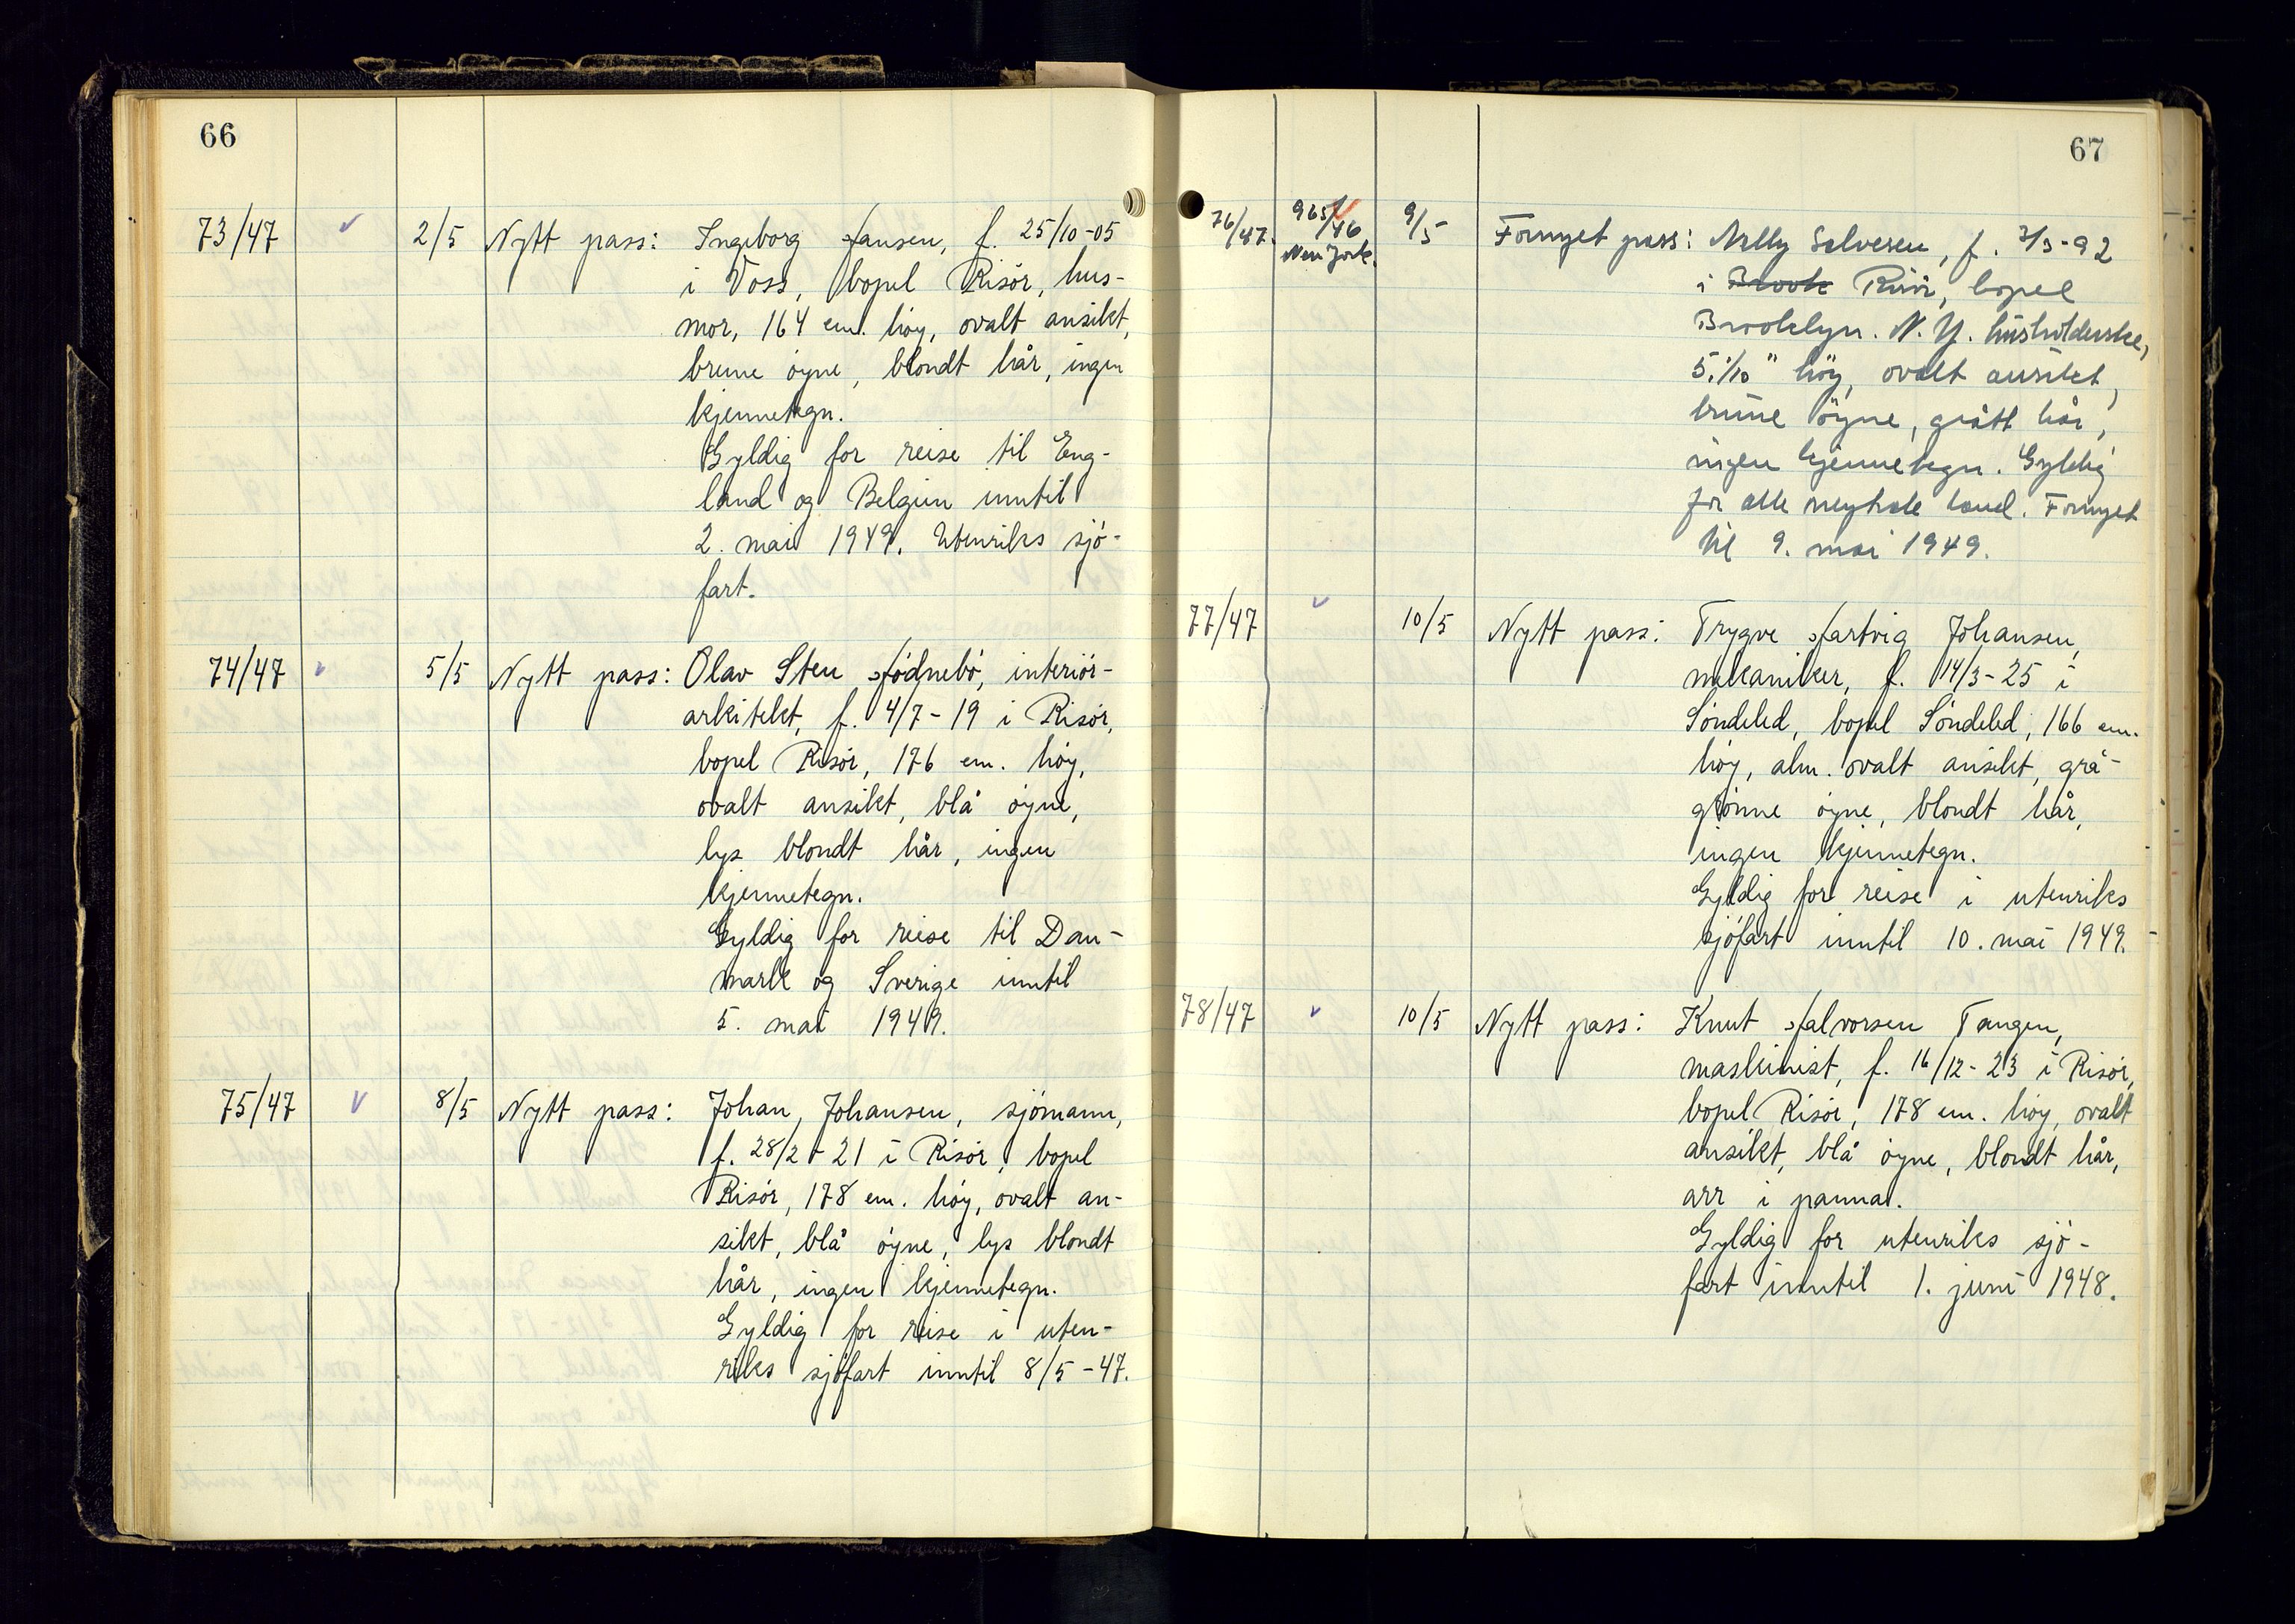 66
73/47 2/5 Nytt pass: Ingeborg Hansen, f. 25/10-05
i Voss, bopel Risör, hus-
mor, 164 cm. höy, ovalt ansikt,
brune öyne, blondt hår, ingen
kjennetegn.
Gyldig for reise til Eng-
land og Belgien inntil
2. mai 1949. Utenriks sjö-
fart.
74/47 5/5 Nytt pass: Olav Sten Hödnebö, interiör-
arkitekt, f. 4/7-19 i Risör,
bopel Risör, 176 cm. höy,
ovalt ansikt, blå öyne,
lys blondt hår, ingen
kjennetegn.
Gyldig for reise til Dan-
mark og Sverige inntil
5. mai 1949.
75/47 V 8/5 Nytt pass: Johan Johansen, sjömann,
f. 28/2-21 i Risör, bopel
Risör, 178 cm. höy, ovalt an-
sikt, blå öyne, lys blondt
hår, ingen kjennetegn.
Gyldig for reise i uten-
riks sjöfart inntil 8/5-47.
67
76/47. 965/46 New York. 9/5 Fornyet pass: Nelly Salvesen, f. 7/3-92
i Risör, bopel
Brooklyn. N.Y. husholderske,
5.1/10" höy, ovalt ansikt,
brune öyne, grått hår,
ingen kjennetegn. Gyldig
for alle neytrale land. Fornyet
til 9. mai 1949.
77/47 10/5 Nytt pass: Trygve Hartvig Johansen,
mekaniker, f. 14/3-25 i
Söndeled, bopel Söndeled, 166 cm.
höy, alm. ovalt ansikt, grå-
grönne öyne, blondt hår,
ingen kjennetegn.
Gyldig for reise i utenriks
sjöfart inntil 10. mai 1949.
78/47 10/5 Nytt pass: Knut Halvorsen Tangen,
maskinist, f. 16/12-23 i Risör,
bopel Risör, 178 cm. höy, ovalt
ansikt, blå öyne, blondt hår,
arr i panna.
Gyldig for utenriks sjö-
fart inntil 1. juni 1948.